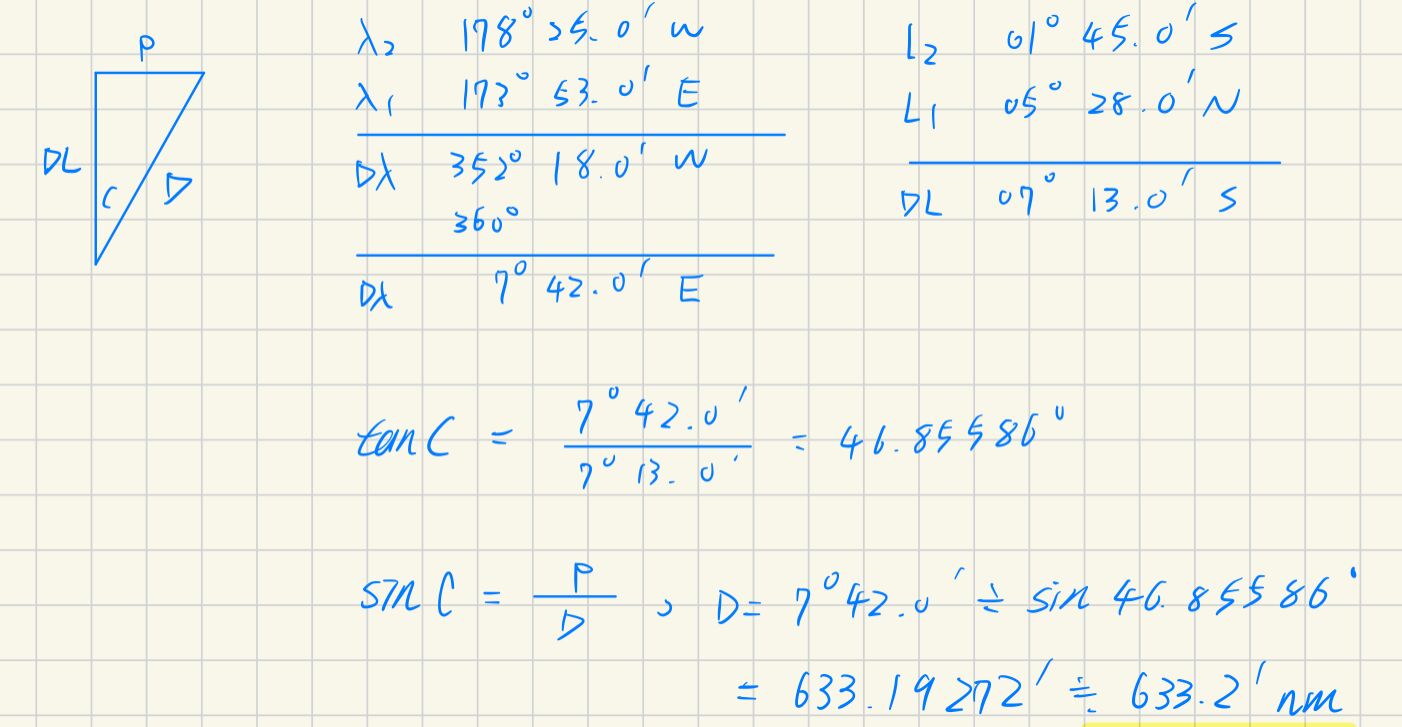 P
DL
C
D
λ₂ 178° 25.0′ W
λ₁ 173° 53.0′ E
Dλ 352° 18.0′ W
360°
Dλ 7° 42.0′ E
L₂ 01° 45.0′ S
L₁ 05° 28.0′ N
DL 07° 13.0′ S
tan C = 7° 42.0′ / 7° 13.0′ = 46.85586°
sin C = P / D , D = 7° 42.0′ ÷ sin 46.85586°
= 633.19272′ ≒ 633.2′ nm